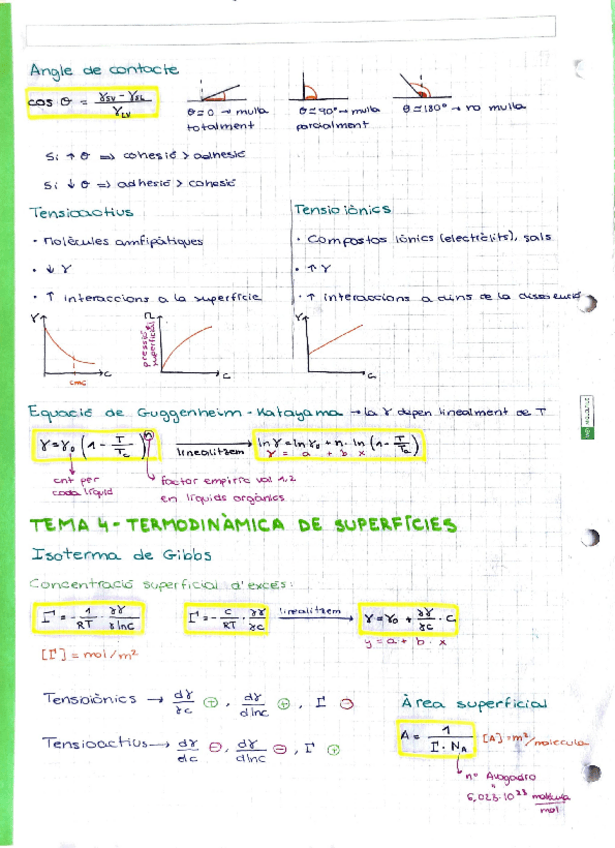 Angle de contacte
cos θ = γSV - γSL / γLV
θ=0 → mulla totalment
θ≃90° → mulla parcialment
θ≃180° → no mulla
Si ↑ θ => cohesió > adhesió
Si ↓ θ => adhesió > cohesió
Tensioactius
· Molècules amfipàtiques
· ↓ γ
· ↑ interaccions a la superfície
γ
c
cmc
π
pressió superficial
c
Tensioiònics
· Compostos iònics (electròlits), sals
· ↑ γ
· ↑ interaccions a dins de la
γ
c
Equació de Guggenheim - Katayama → la γ depen linealment de T
γ = γ₀ (1 - T/Tc)ⁿ
linealitzem
ln γ = ln γ₀ + n · ln (1 - T/Tc)
y = a + b x
cnt per cada líquid
factor empíric val 1,2
en líquids orgànics
TEMA 4 - TERMODINÀMICA DE SUPERFÍCIES
Isoterma de Gibbs
Concentració superficial d'excés:
Γ = - 1/RT · ∂γ/∂lnc
Γ = - c/RT · ∂γ/∂c
linealitzem
γ = γ₀ + ∂γ/∂c · c
y = a + b · x
[Γ] = mol/m²
Tensioiònics → dγ/∂c ⊕, dγ/dlnc ⊕, Γ ⊖
Tensioactius → dγ/dc ⊖, dγ/dlnc ⊖, Γ ⊕
Àrea superficial
A = 1 / Γ · NA
[A] = m²/molecula
nº Avogadro
6,023·10²³ /mol